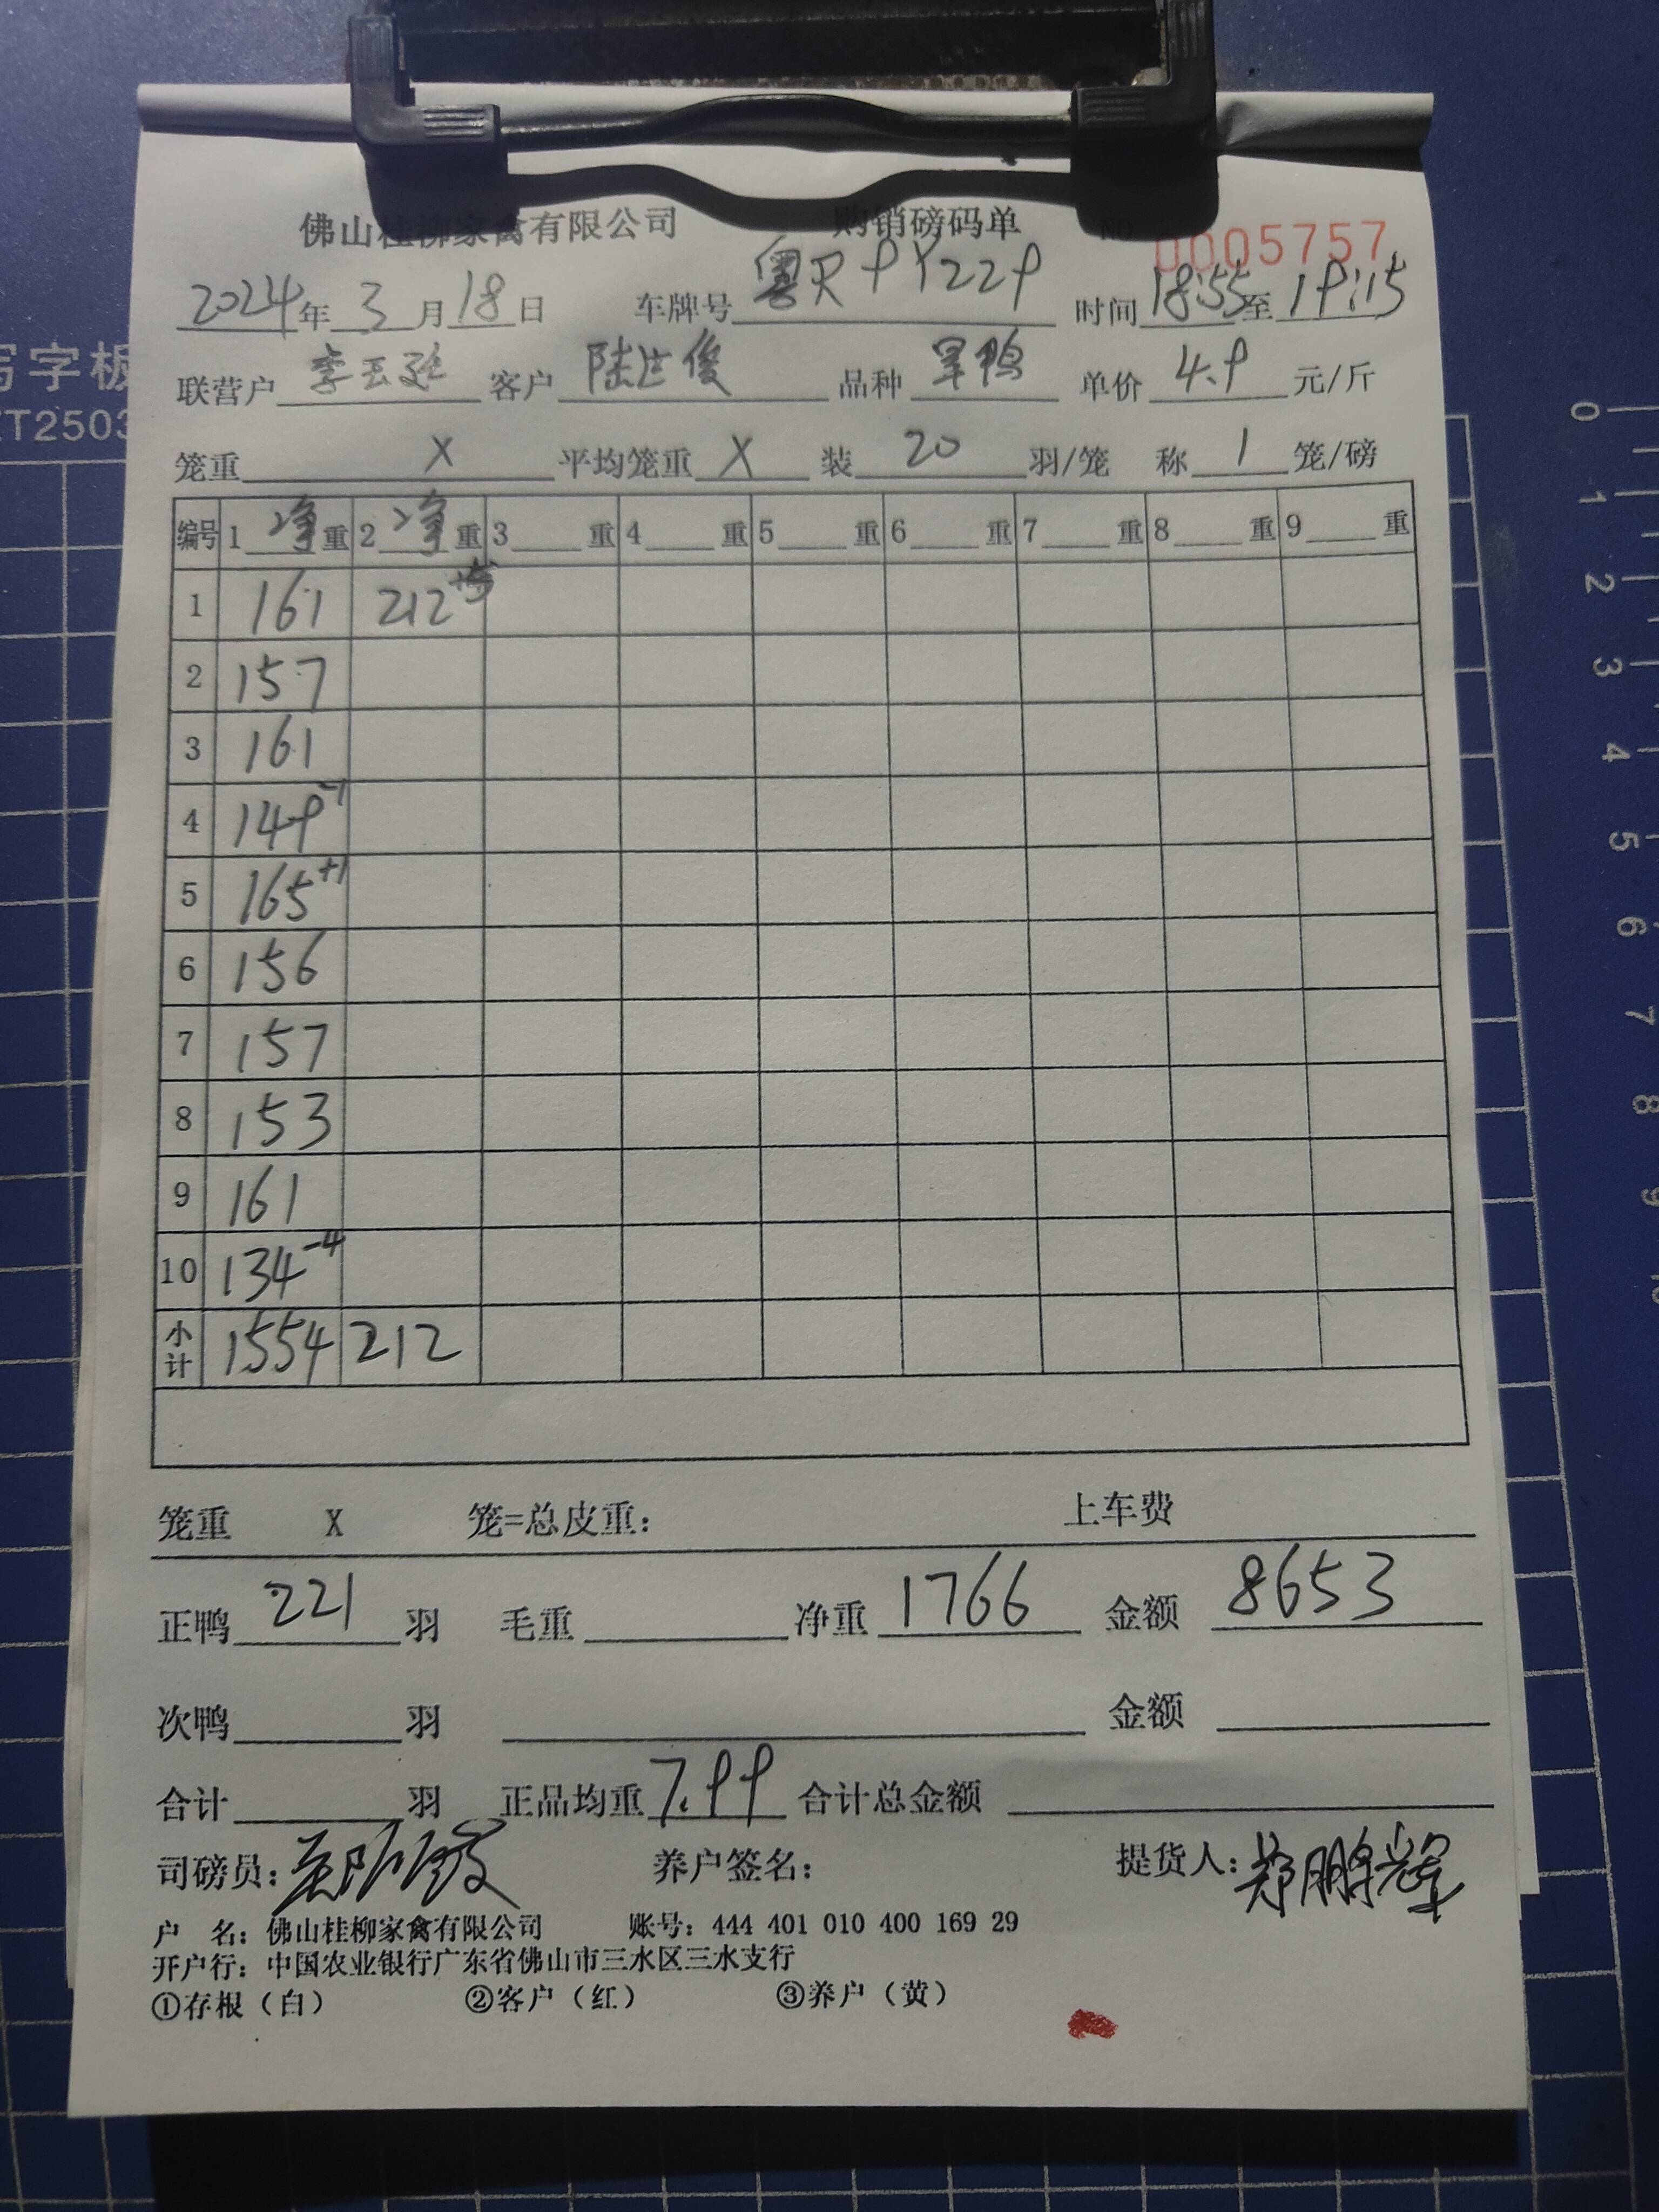 佛山桂柳家禽有限公司 购销磅码单 NO 0005757
2024年3月18日 车牌号 粤R9Y229 时间 18:55至19:15
联营户 李玉廷 客户 陆俊 品种 旱鸭 单价 4.9 元/斤
笼重 X 平均笼重 X 装 20 羽/笼 称 1 笼/磅
编号 1 净重 2 净重 3 重 4 重 5 重 6 重 7 重 8 重 9 重
1 161 212
2 157
3 161
4 149 -1
5 165 +1
6 156
7 157
8 153
9 161
10 134 -4
小计 1554 212
笼重 X 笼=总皮重： 上车费
正鸭 221 羽 毛重 净重 1766 金额 8653
次鸭 羽 金额
合计 羽 正品均重 7.99 合计总金额
司磅员： 养户签名： 提货人：郑鹏辉
户 名：佛山桂柳家禽有限公司 账号：444 401 010 400 169 29
开户行：中国农业银行广东省佛山市三水区三水支行
①存根（白） ②客户（红） ③养户（黄）
写字板
T2503
0
1
2
3
4
5
6
7
8
9